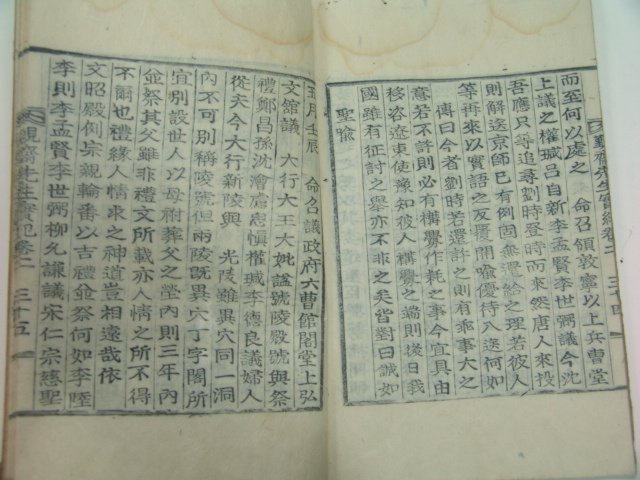 而至何以處之 命召領敦寧以上兵曹堂
上議之權瑊呂自新李孟賢李世弼議今沈
吾應只等追尋劉時登時而來然唐人來投
則解送京師已有例固無給之理若彼人
等再來以實語之反覆開喻優待入送何如
傳曰今者劉時若還許之則有乖事大之
意若不許則彼必有構釁作耗之事今宜具由
移咨遼東使豫知彼人構釁之端則後日我
國雖有征討之擧亦不非之矣皆對曰誠如
聖喩
三十四
五月壬辰 命召議政府六曹館閣堂上弘
文館議 大行大王大妃諡號陵殿號與祭
禮鄭昌孫沈澮盧思愼權瑊李德良議婦人
從夫今大行新陵與 光陵雖異穴同一洞
內不可別稱陵號但兩陵旣異穴丁字閣所
宜別設世人以母祔葬父之塋內則三年內
並祭其父雖非禮文所載亦人情之所不得
不爾也禮緣人情求之神道豈相遠哉依
文昭殿例宗親輪番以吉禮並祭何如李陸
李則李孟賢李世弼柳允謙議宋仁宗慈聖
親齋先生實紀卷二 三十五